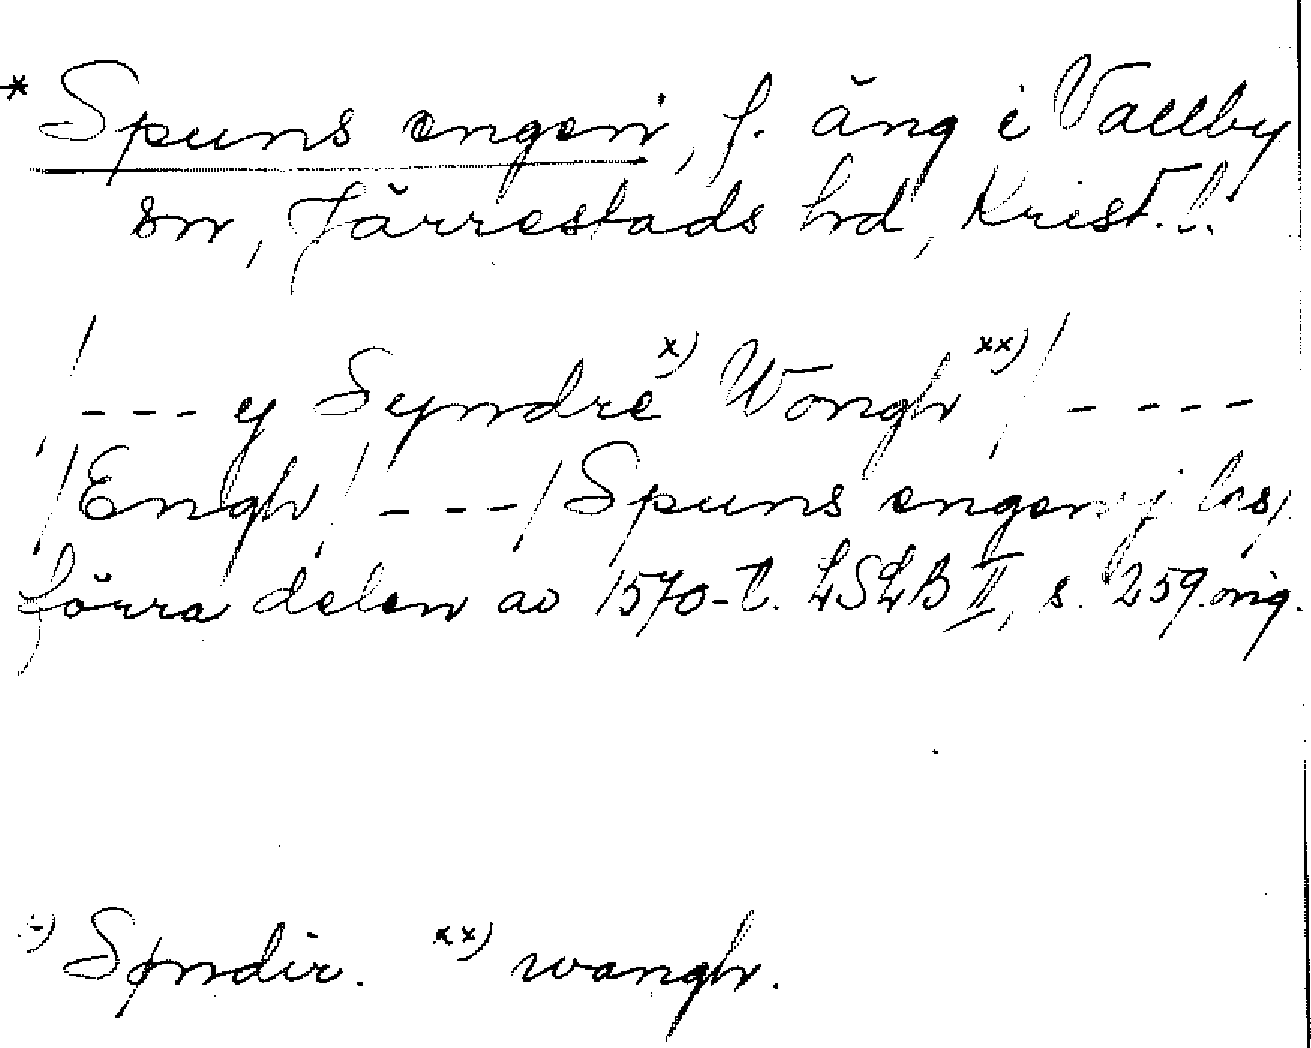 * Spuns engen, f. äng i Vallby
sn, Järrestads hd, Krist. l.
/ - - - y Syndre x) Wongh xx) / - - - -
/Engh/ - - - / Spuns engen j
förra delen av 1570-t. LSLB II, s. 259. orig.
x) Syndir. xx) wangh.